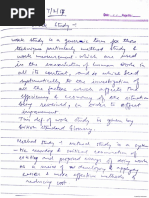 7/2/18
Work Study →
Work study is a generic term for those
techniques particularly method study &
work measurement which are used
in the examination of human work in
all its context, and which lead
systematically to the investigation
of all the factors which affects the
efficiency & economy of the situation
being reviewed in order to effect
improvement
This def of work study is given by
british standard Glossary.
Method study → Method study is a
recording & critical
existing and proposed ways of doing work
as a means of developing & applying
easier & more effective method &
reducing cost